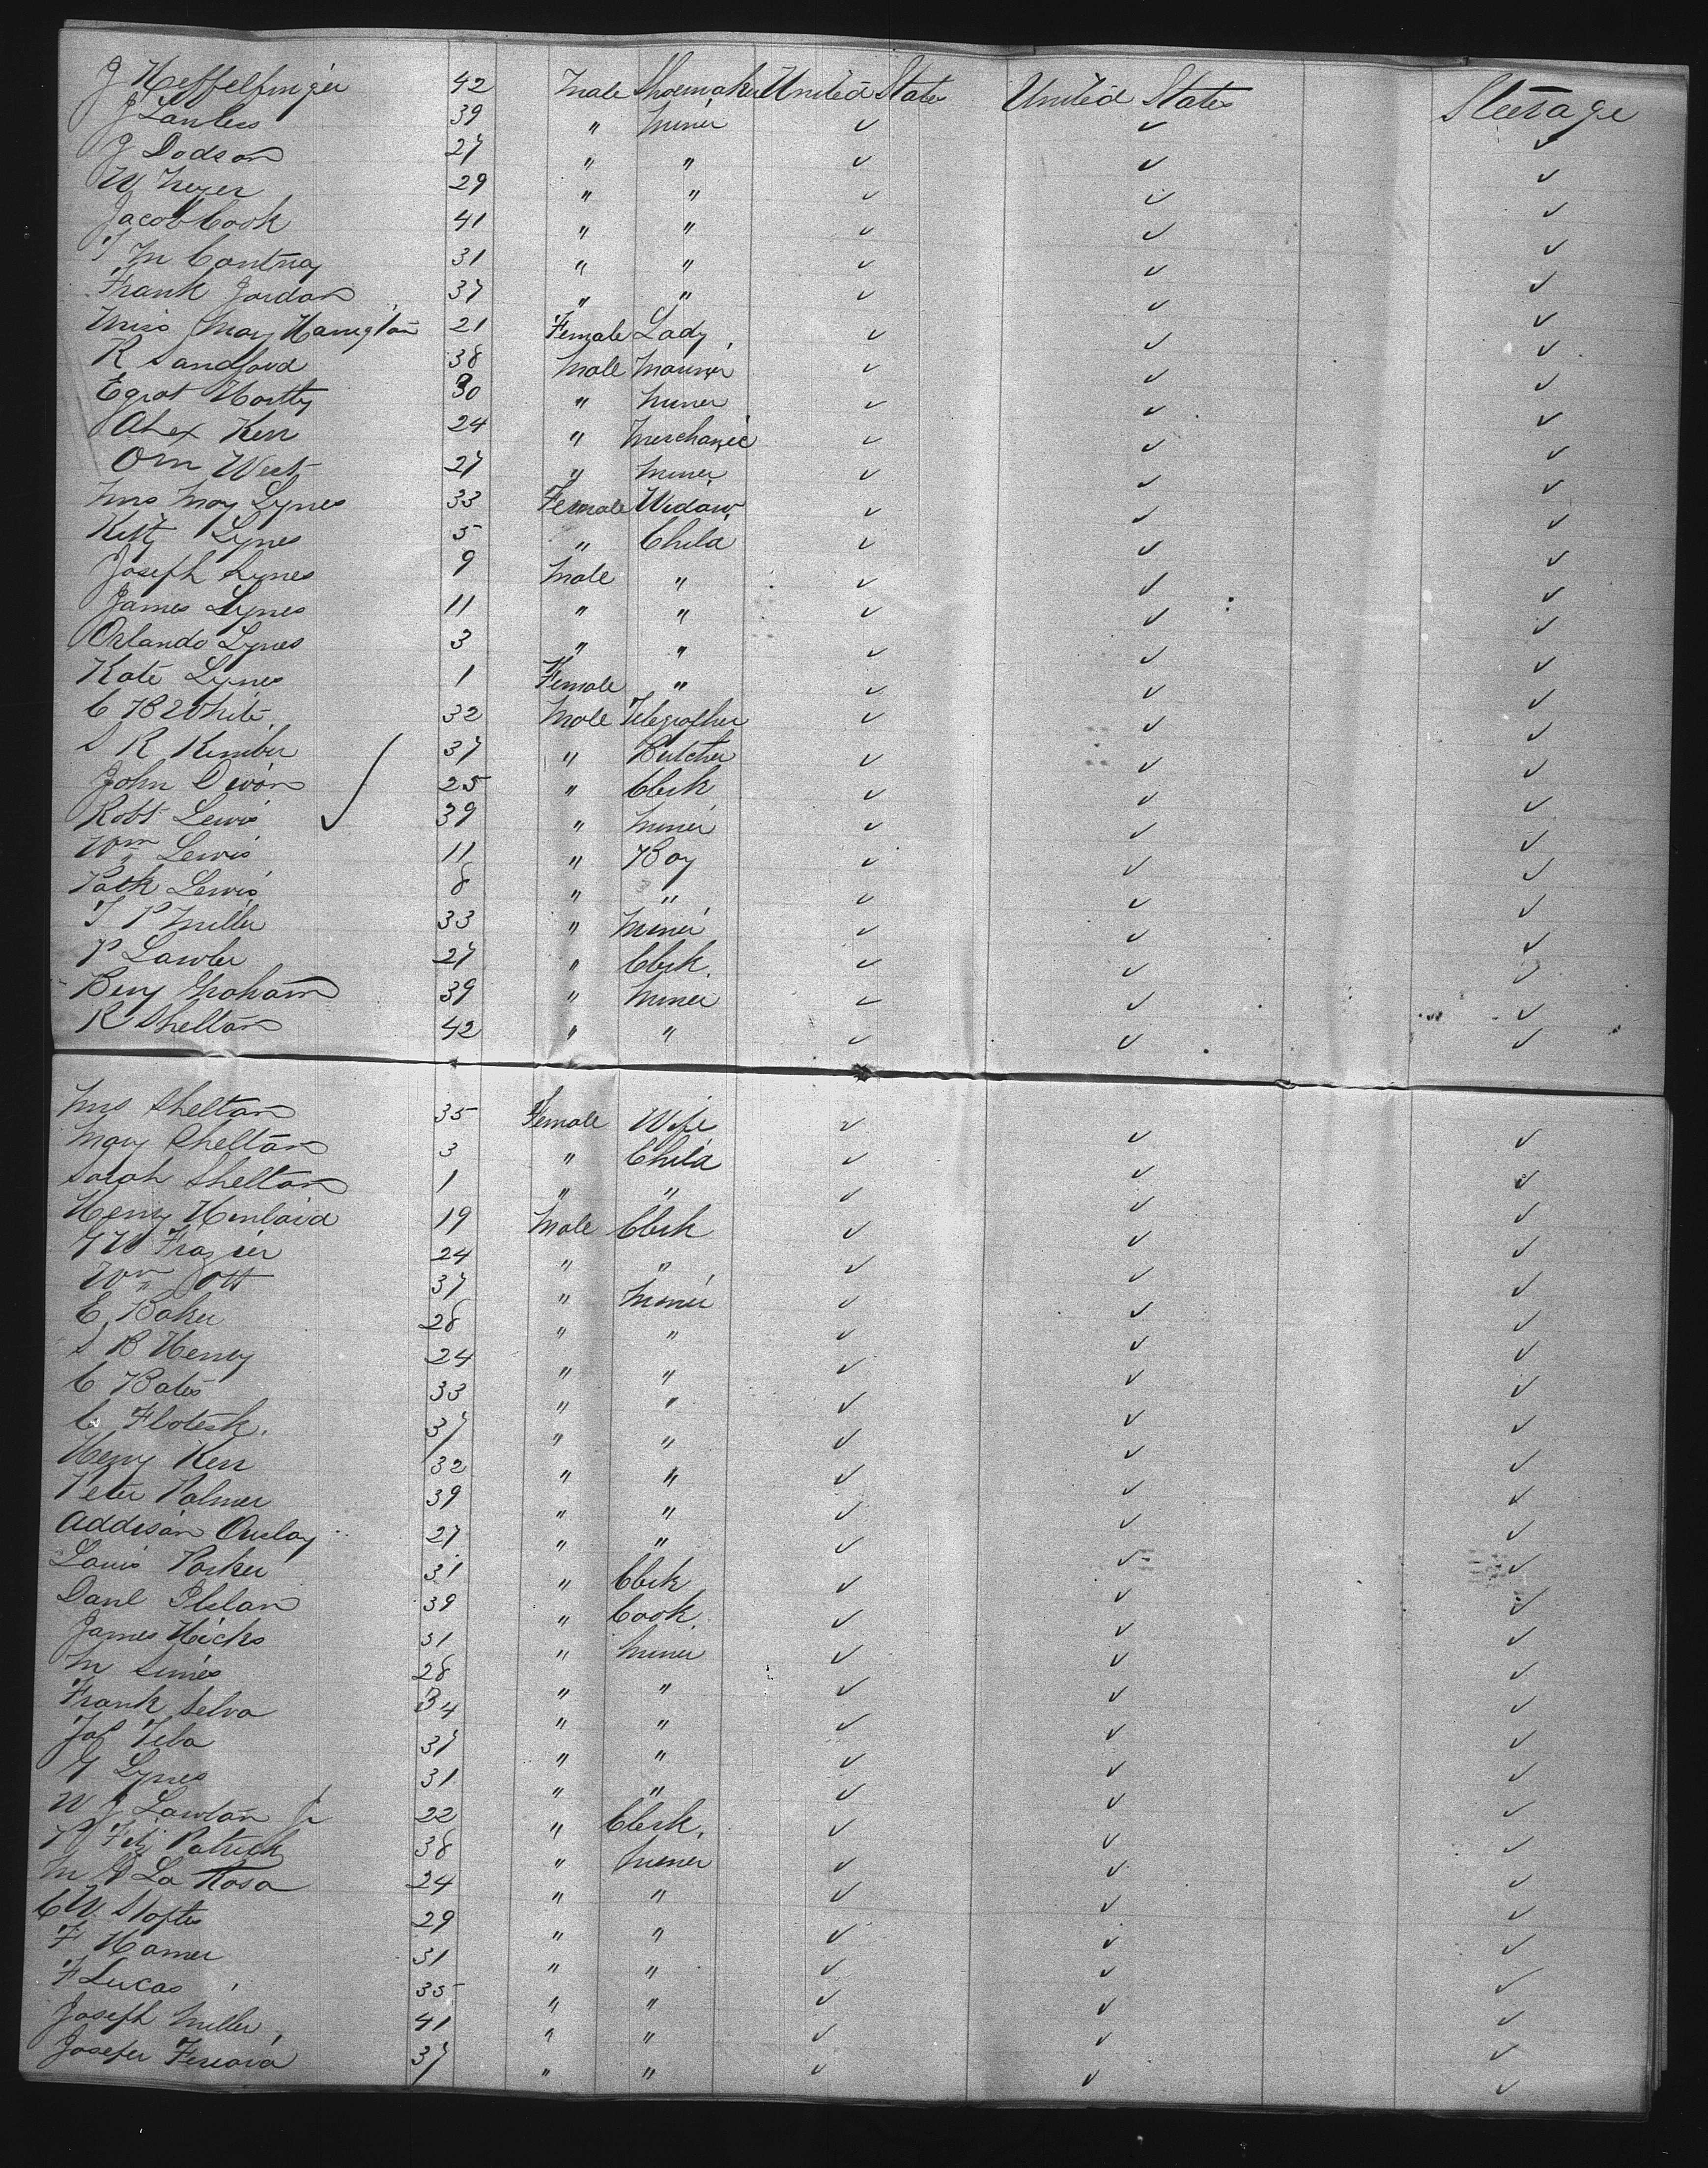 J Heffelfinger 42 Male Shoemaker United States United States Steerage
J Lawless 39 " Miner ✓ ✓ ✓
J Dodson 27 " " ✓ ✓ ✓
W Meyer 29 " " ✓ ✓ ✓
Jacob Cook 41 " " ✓ ✓ ✓
T M 31 " " ✓ ✓ ✓
Frank Jordan 37 " " ✓ ✓ ✓
Miss May 21 Female Lady ✓ ✓ ✓
R Sandford 38 Male Mariner ✓ ✓ ✓
30 " Miner ✓ ✓ ✓
Alex Kerr 24 " ✓ ✓ ✓
West 27 " Miner ✓ ✓ ✓
Mrs May Lynes 33 Female Widow ✓ ✓ ✓
Kitty Lynes 5 " Child ✓ ✓ ✓
Joseph Lynes 9 Male " ✓ ✓ ✓
James Lynes 11 " " ✓ ✓ ✓
Orlando Lynes 3 " " ✓ ✓ ✓
Kate Lynes 1 Female " ✓ ✓ ✓
C B White 32 Male Telegrapher ✓ ✓ ✓
S R Kimber 37 " Butcher ✓ ✓ ✓
John 25 " Clerk ✓ ✓ ✓
Robt Lewis 39 " Miner ✓ ✓ ✓
Wm Lewis 11 " Boy ✓ ✓ ✓
Patk Lewis 8 " " ✓ ✓ ✓
T P Miller 33 " Miner ✓ ✓ ✓
P Lawler 27 " Clerk ✓ ✓ ✓
Benj Graham 39 " Miner ✓ ✓ ✓
R Shelton 42 " " ✓ ✓ ✓
Mrs Shelton 35 Female Wife ✓ ✓ ✓
Mary Shelton 3 " Child ✓ ✓ ✓
Sarah Shelton 1 " " ✓ ✓ ✓
Henry 19 Male Clerk ✓ ✓ ✓
G W Frazier 24 " " ✓ ✓ ✓
Wm Ott 37 " Miner ✓ ✓ ✓
E Baker 28 " " ✓ ✓ ✓
S B Henry 24 " " ✓ ✓ ✓
C Bates 33 " " ✓ ✓ ✓
C 37 " " ✓ ✓ ✓
Henry Kerr 32 " " ✓ ✓ ✓
Peter Palmer 39 " " ✓ ✓ ✓
Addison Ouslay 27 " " ✓ ✓ ✓
Louis Parker 31 " Clerk ✓ ✓ ✓
Danl 39 " Cook ✓ ✓ ✓
James Hicks 31 " Miner ✓ ✓ ✓
M Simes 28 " " ✓ ✓ ✓
Frank Selva 34 " " ✓ ✓ ✓
Jos 37 " " ✓ ✓ ✓
G Lynes 31 " " ✓ ✓ ✓
W J Lawton Jr 22 " Clerk ✓ ✓ ✓
P Fitz Patrick 38 " Miner ✓ ✓ ✓
M D La Rosa 24 " " ✓ ✓ ✓
C W 29 " " ✓ ✓ ✓
F Hamer 31 " " ✓ ✓ ✓
F Lucas 35 " " ✓ ✓ ✓
Joseph Miller 41 " " ✓ ✓ ✓
37 " " ✓ ✓ ✓